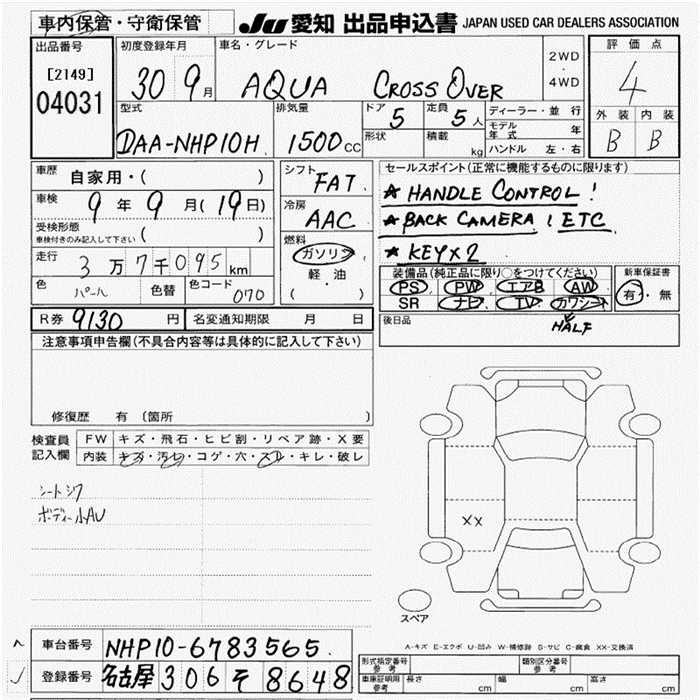 車内保管・守衛保管
JU 愛知 出品申込書 JAPAN USED CAR DEALERS ASSOCIATION
出品番号
[2149]
04031
初度登録年月
30 9月
車名・グレード
AQUA CROSS OVER
2WD
・
4WD
評価点
4
外装 内装
B B
型式
DAA-NHP10H
排気量
1500cc
ドア 5
形状
定員 5人
積載 kg
ディーラー・並行
モデル年式 年
ハンドル 左・右
車歴 自家用・( )
車検 9年9月(19日)
受検形態
車検付きのみ記入して下さい ( )
走行 3万7千095km
色 パール 色替 色コード 070
シフト FAT
冷房 AAC
燃料
ガソリン
軽・油
( )
セールスポイント(正常に機能するものに限ります)
★ HANDLE CONTROL !
★ BACK CAMERA / ETC
★ KEY×2
装備品(純正品に限り○をつけてください)
PS PW エアB AW
SR ナビ TV カワシート
HALF
新車保証書
有・無
R券 9130円 名変通知期限 月 日
後日品
注意事項申告欄(不具合内容等は具体的に記入して下さい)
修復歴 有 〔箇所 〕
検査員
記入欄
FW キズ・飛石・ヒビ割・リペア跡・X要
内装 キズ・汚レ・コゲ・穴・スレ・キレ・破レ
シートシワ
ボディー小AU
XX
スペア
A-キズ E-エクボ U-凹み W-補修跡 S-サビ C-腐食 XX-交換済
車台番号 NHP10-6783565
登録番号 名古屋 306 そ 8648
形式指定番号
参考
類別区分番号
参考
車庫証明用
参考
長さ cm 幅 cm 高さ cm